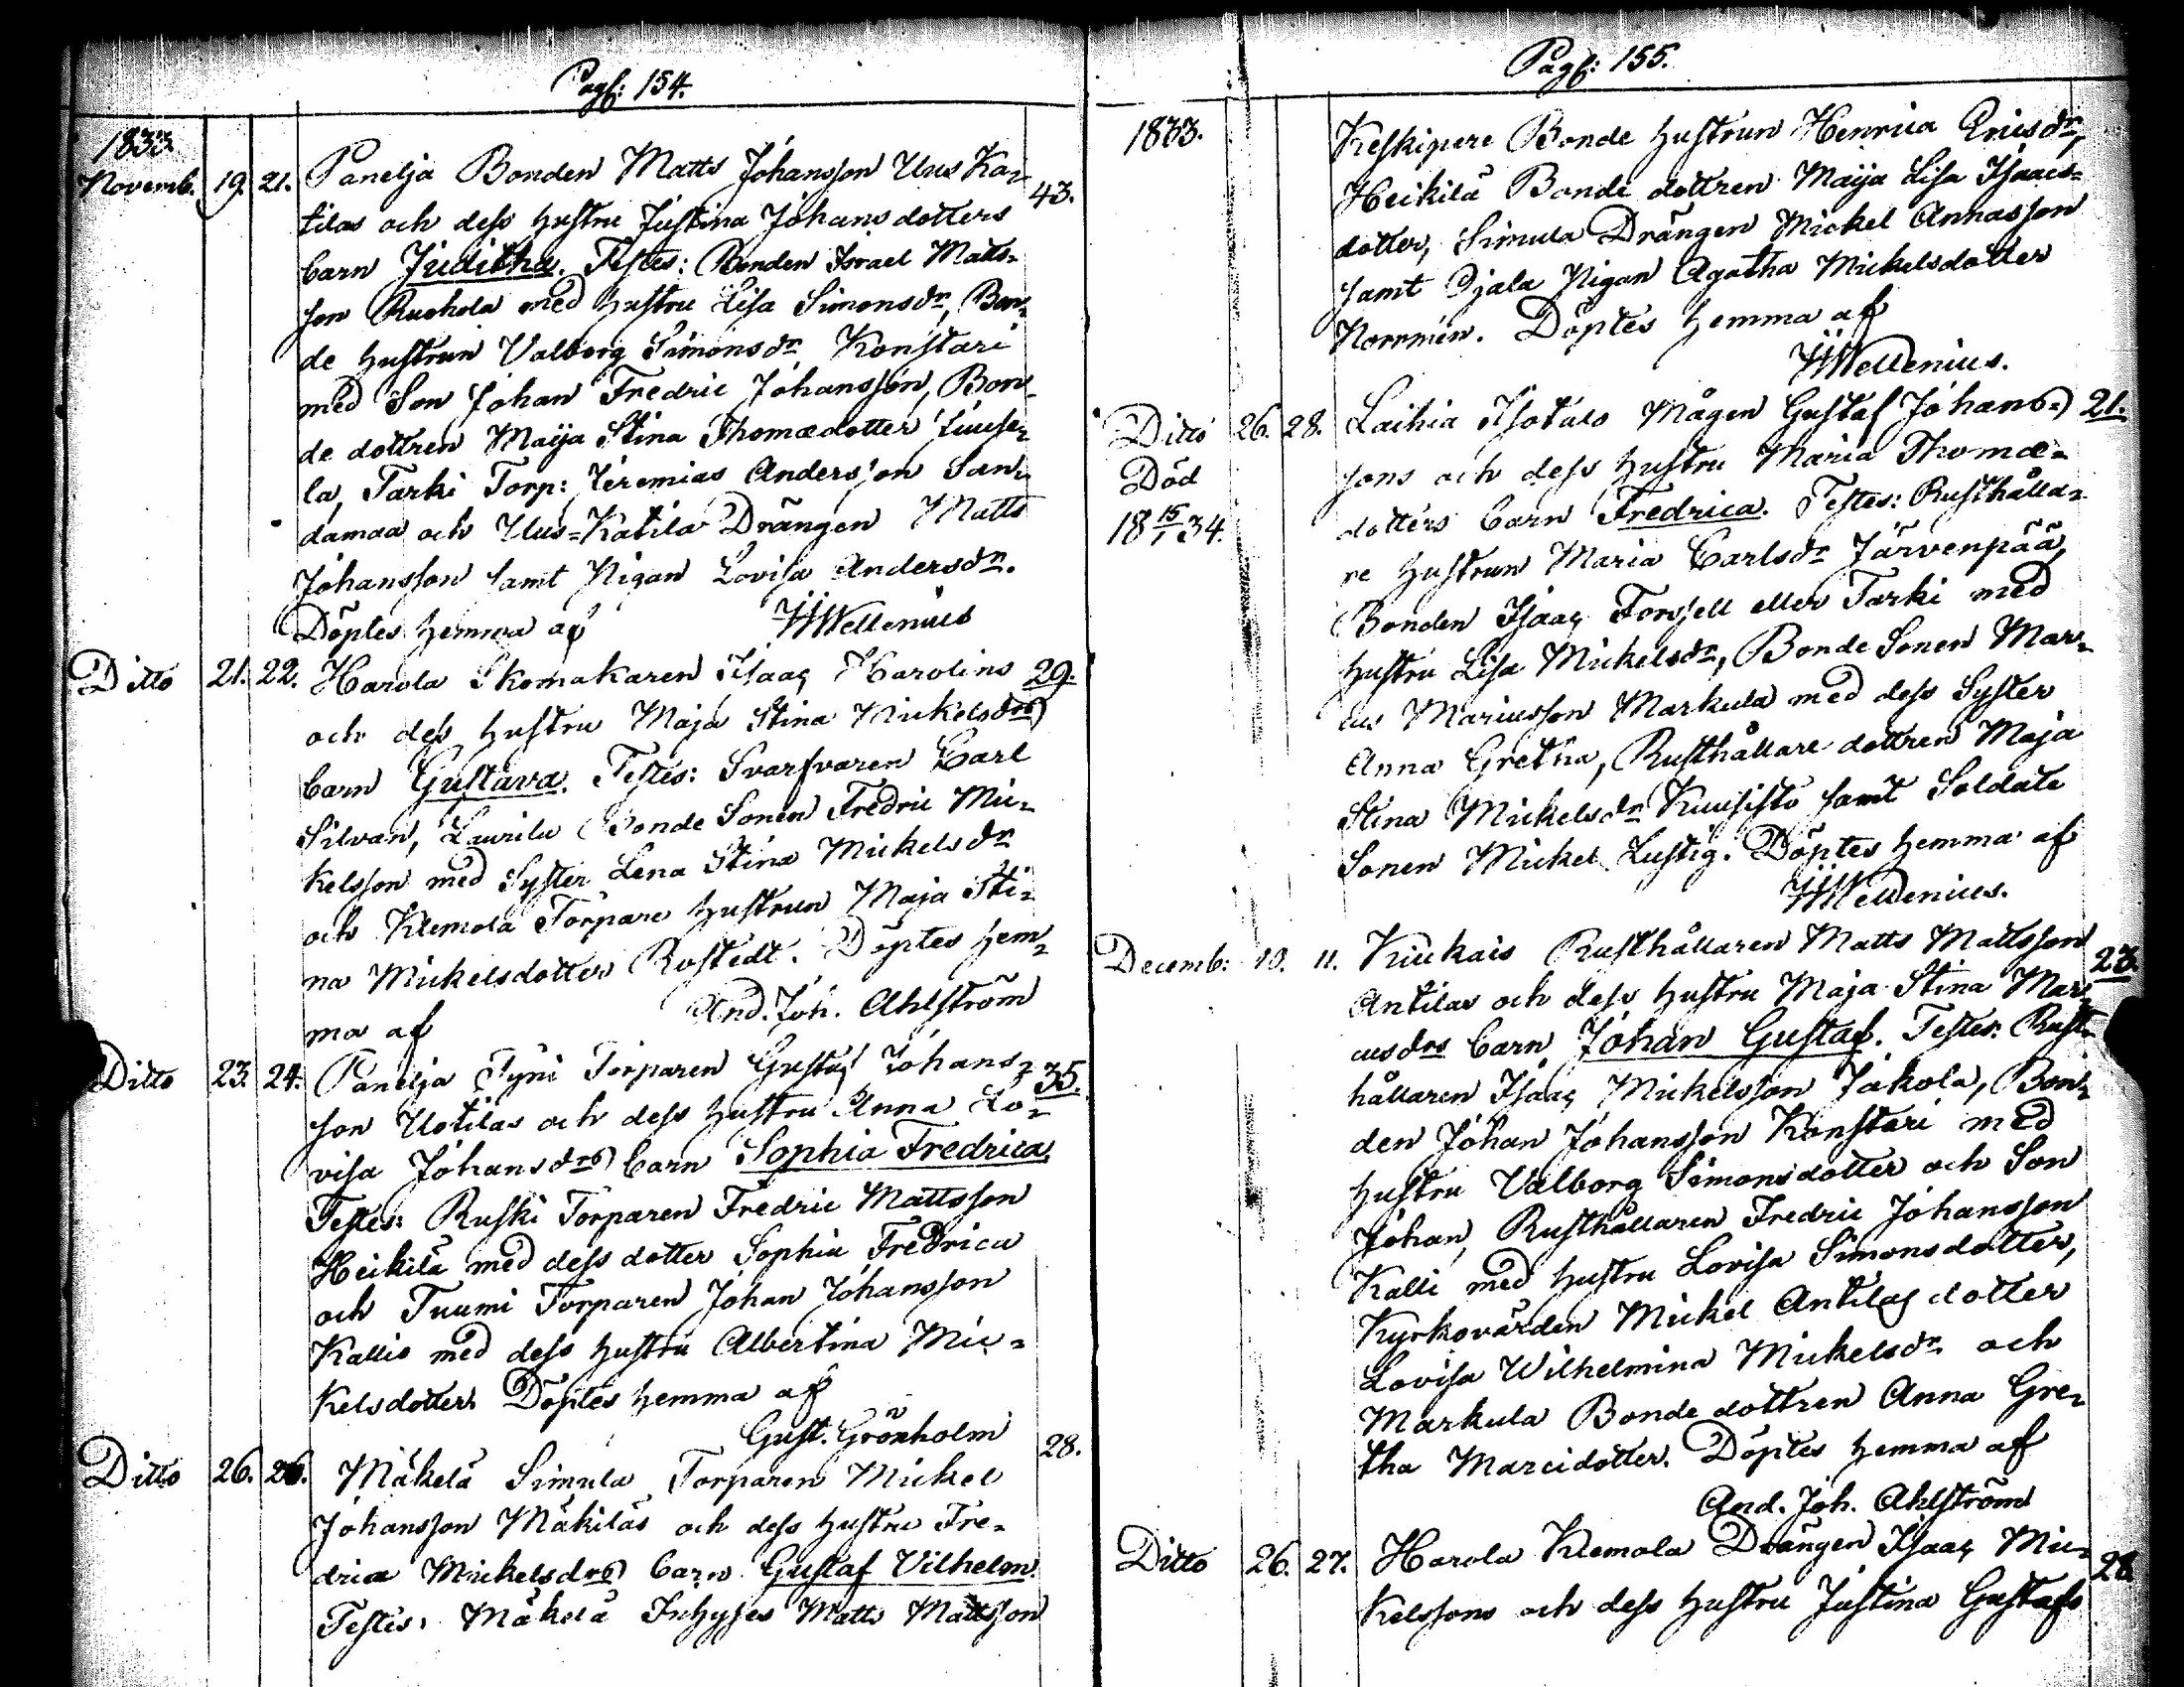 Pag: 154.
1833.
Novemb. 19. 21. Panelja Bonden Matts Johansson Uus Ka= 43.
tilas och dess hustru Justina Johansdotters
barn Juditha. Testes: Bonden Israel Matts=
son Ruohola med hustru Lisa Simonsdr, Bon=
de hustrun Valborg Simonsdr Konstari
med Son Johan Fredric Johansson, Bon=
de dottren Maija Stina Thomædotter
la, Tarki Torp: Jeremias Andersson San=
damaa och Uus=Katila Drängen Matts
Johansson samt Pigan Lovisa Andersdr.
Döptes hemma af Wellenius
Ditto 21. 22. Harola Skomakaren Isaac Harolins 29.
och dess hustru Maja Stina Mickelsdrs
barn Gustava. Testes: Svarfvaren Carl
Silvan, Laurila Bonde Sonen Fredric Mic=
kelsson med Syster Lena Stina Mickelsdr
och Klemola Torpare hustrun Maja Sti=
na Mickelsdotter Rostedt. Döptes hem=
ma af And. Joh. Ahlström
Ditto 23. 24. Panelja Tyni Torparen Gustaf Johans= 35.
son Uotilas och dess hustru Anna Lo=
visa Johansdrs barn Sophia Fredrica.
Testes: Ruski Torparen Fredric Mattsson
Heikilä med dess dotter Sophia Fredrica
och Tuumi Torparen Johan Johansson
Kallio med dess hustru Albertina Mic=
kelsdotter. Döptes hemma af
Gust. Grönholm
Ditto 26. 26. Mäkelä Simula Torparen Mickel 28.
Johansson Mäkiläs och dess hustru Fre=
drica Mickelsdrs barn Gustaf Vilhelm.
Testes: Mäkelä Inhyses Matts Mattsson
Pag: 155.
1833.
Keskipere Bonde hustrun Henrica Ericsdr,
Heikilä Bonde dottren Maija Lisa Isaacs=
dotter, Simula Drängen Mickel Annasson
samt Ojala Pigan Agatha Mickelsdotter
Norrmén. Döptes hemma af
Wellenius.
Ditto 26. 28. Laihia Isotalo Mågen Gustaf Johans= 21.
Död
18 15/1 34.
sons och dess hustru Maria Thomæ=
dotters barn Fredrica. Testes: Rusthålla=
re hustrun Maria Carlsdr Järvenpää,
Bonden Isaac Forssell eller Tarki med
hustru Lisa Mickelsdr, Bonde Sonen Mar=
cus Marcusson Markula med dess Syster
Anna Gretha, Rusthållare dottren Maja
Stina Mickelsdr Kuusisto samt Soldate
Sonen Mickel Lustig. Döptes hemma af
Wellenius.
Decemb: 10. 11. Kiukais Rusthållaren Matts Mattsson 23.
Antilas och dess hustru Maja Stina Mar=
cusdrs barn Johan Gustaf. Testes: Rust=
hållaren Isaac Mickelsson Jakola, Bon=
den Johan Johansson Konstari med
hustru Valborg Simonsdotter och Son
Johan, Rusthållaren Fredric Johansson
Kalli med hustru Lovisa Simonsdotter,
Kyrkovärden Mickel Antilas dotter
Lovisa Wilhelmina Mickelsdr och
Markula Bonde dottren Anna Gre=
tha Marcidotter. Döptes hemma af
And. Joh. Ahlström
Ditto 26. 27. Harola Klemola Drängen Isaac Mic= 28
kelssons och dess hustru Justina Gustafs